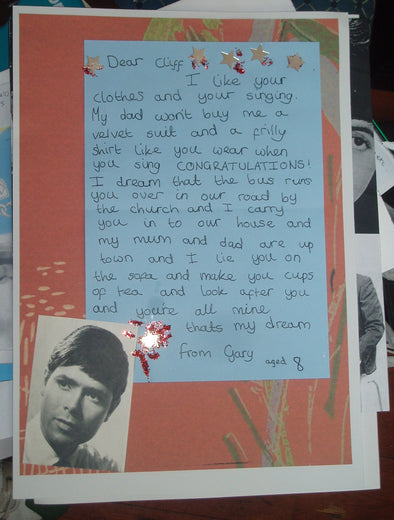 Dear Cliff
I like your
clothes and your singing.
My dad won't buy me a
velvet suit and a frilly
shirt like you wear when
you sing CONGRATULATIONS!
I dream that the bus runs
you over in our road by
the church and I carry
you in to our house and
my mum and dad are up
town and I lie you on
the sofa and make you cups
of tea and look after you
and you're all mine
thats my dream
from Gary aged 8